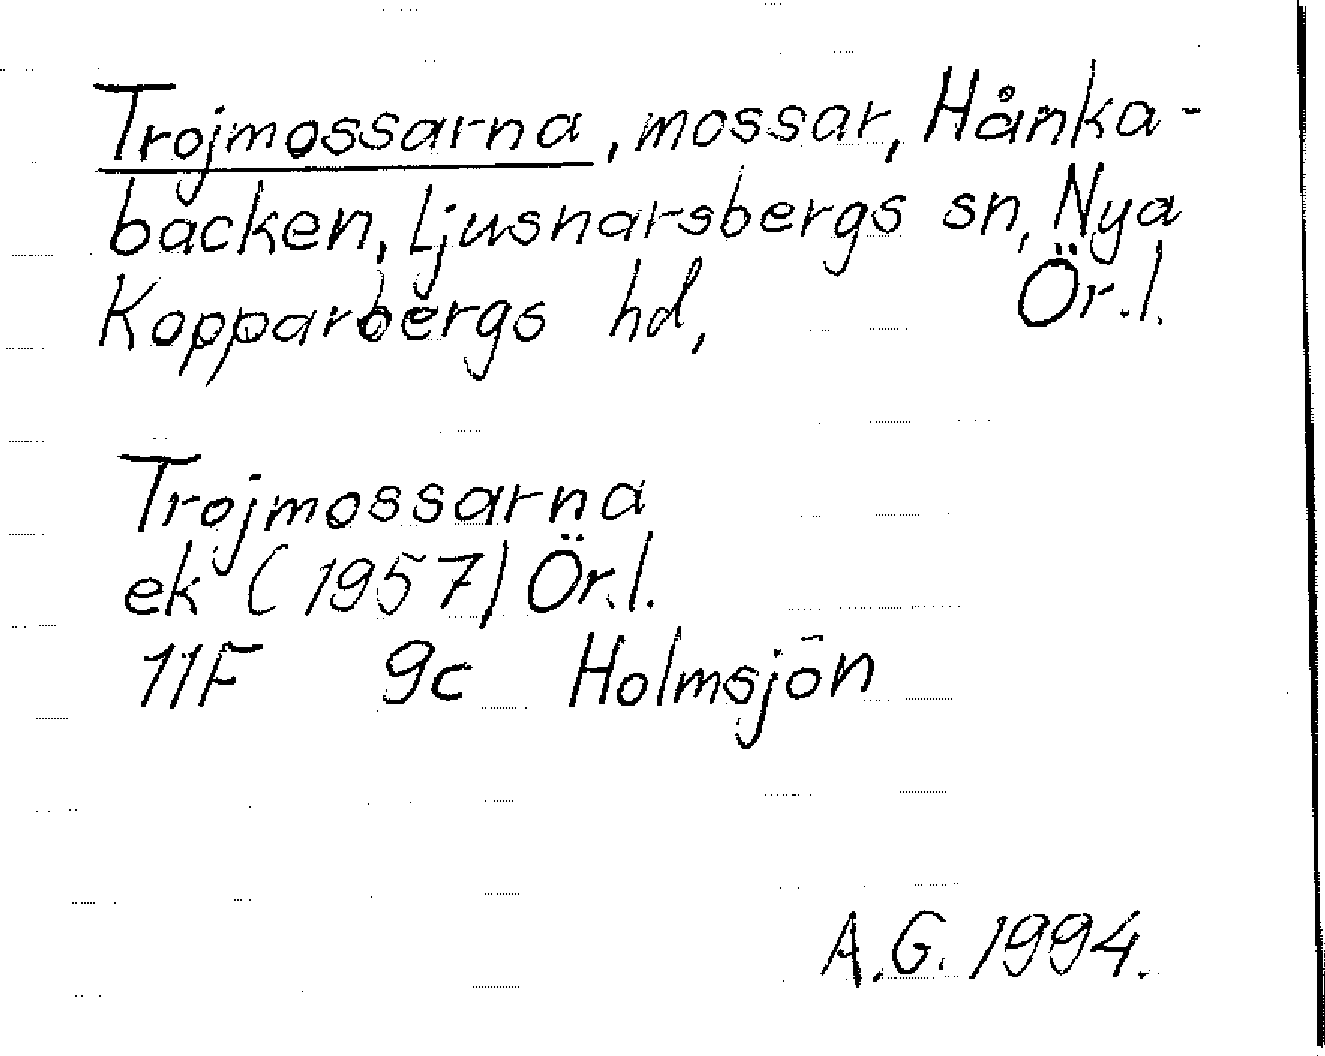 Trojmossarna, mossar, Hånka-
backen, Ljusnarsbergs sn, Nya
Kopparbergs hd, Ör.l.
Trojmossarna
ek (1957) Ör.l.
11F 9c Holmsjön
A.G. 1994.